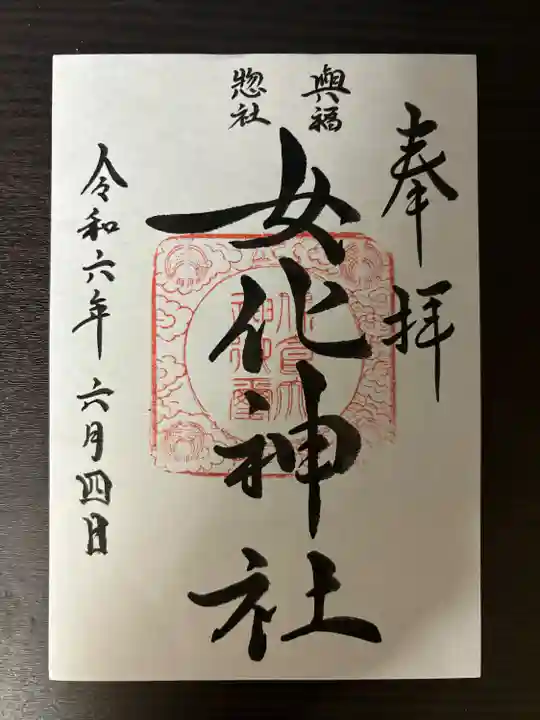 奉拝
興福
惣社
女化神社
令和六年六月四日